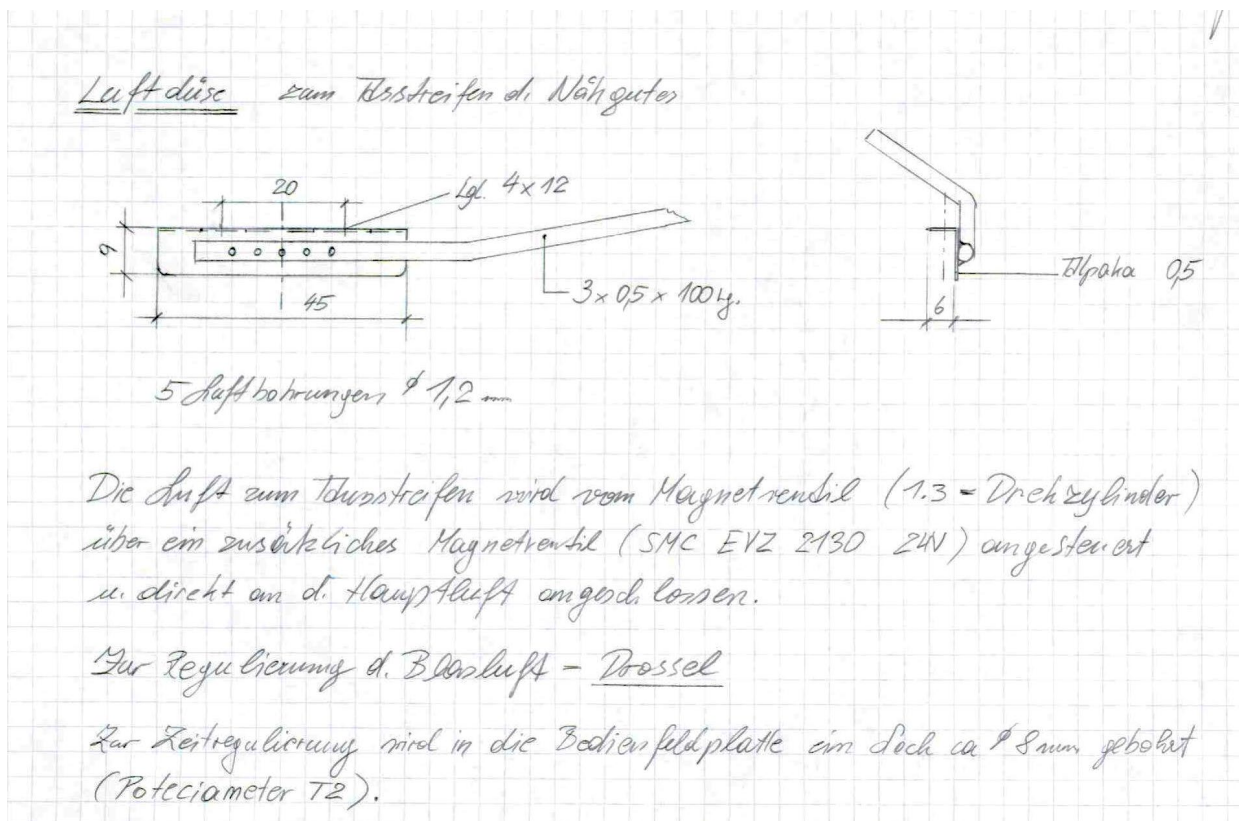 Luftdüse zum Ausstreifen d. Nähgutes
20
Lgl. 4x12
9
45
3 x 0,5 x 100 Lg.
Alpaka 0,5
6
5 Luftbohrungen ø 1,2 mm
Die Luft zum Ausstreifen wird vom Magnetventil (1.3 = Drehzylinder)
über ein zusätzliches Magnetventil (SMC EVZ 2130 24V) angesteuert
u. direkt an d. Hauptluft angeschlossen.
Zur Regulierung d. Blasluft - Drossel
Zur Zeitregulierung wird in die Bedienfeldplatte ein Loch ca ø 8 mm gebohrt
(Poteciameter T2).